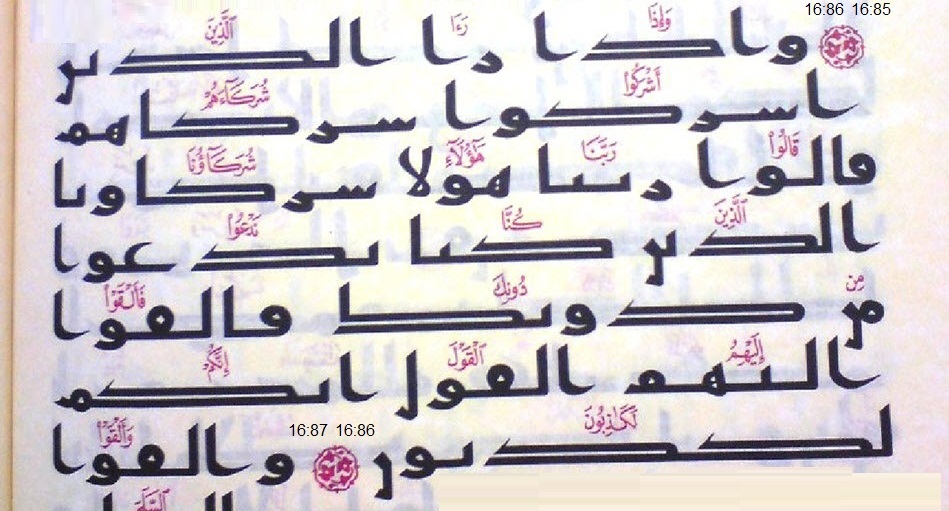 16:86 16:85
وَإِذَا رَءَا ٱلَّذِينَ
واذا را الذين
أَشْرَكُوا۟ شُرَكَآءَهُمْ
اشركوا شركاهم
قَالُوا۟ رَبَّنَا هَٰٓؤُلَآءِ شُرَكَآؤُنَا
قالوا ربنا هولا شركاونا
ٱلَّذِينَ كُنَّا نَدْعُوا۟
الذين كنا ندعوا
مِن دُونِكَ فَأَلْقَوْا۟
من دونك فالقوا
إِلَيْهِمُ ٱلْقَوْلَ إِنَّكُمْ
اليهم القول انكم
16:87 16:86
لَكَٰذِبُونَ وَأَلْقَوْا۟
لكذبون والقوا